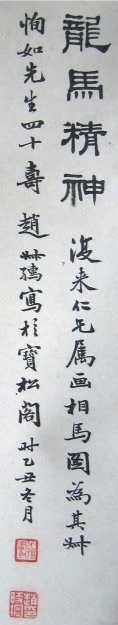 龍馬精神
復來仁兄属画相馬圖為其叔
恂如先生四十壽 趙叔孺寫於寶松閣 时乙丑冬月